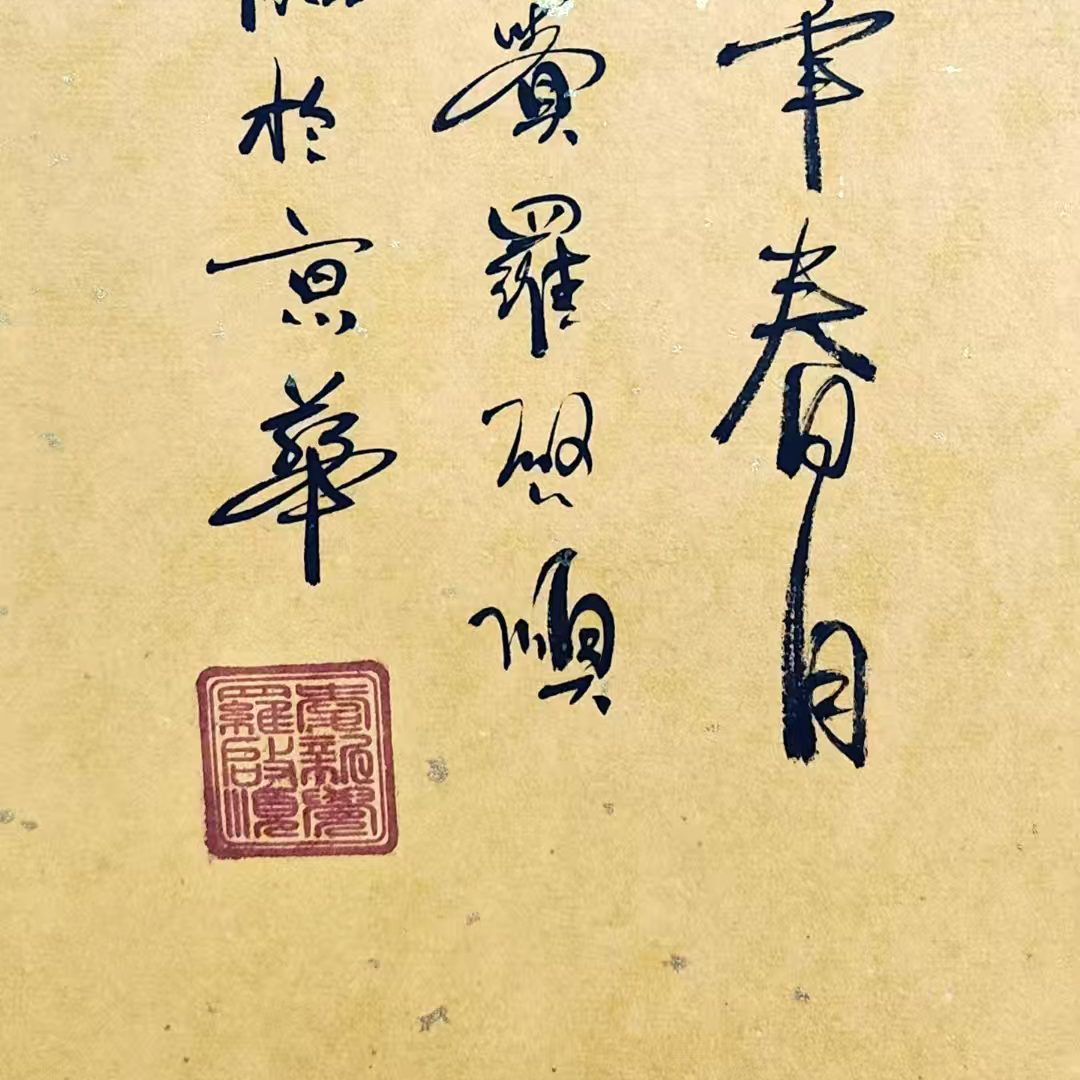 年春月
覺羅啓順
於京華
愛新覺
羅啟順